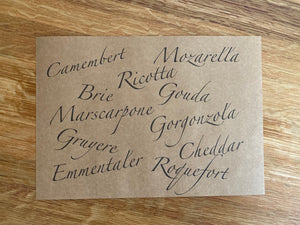 Camembert Mozarella
Ricotta
Brie Gouda
Marscarpone
Gorgonzola
Gruyere
Cheddar
Emmentaler
Roquefort